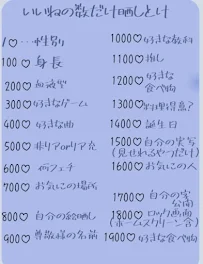 いいねの数だけ晒しとけ
1♡…性別
100♡身長
200♡血液型
300♡好きなゲーム
400♡好きな曲
500♡非リアorリア充
600♡何フェチ
700♡お気にの場所
800♡自分の絵晒し
900♡尊敬様の名前
1000♡好きな教科
1100♡推し
1200♡好きな
食べ物
1300♡料理得意?
1400♡誕生日
1500♡自分の実写
(見せれるやつだけ)
1600♡お気にの人
1700♡自分の家
公開
1800♡ロック画面
(ホームスクリーン含)
1900♡好きな食べ物